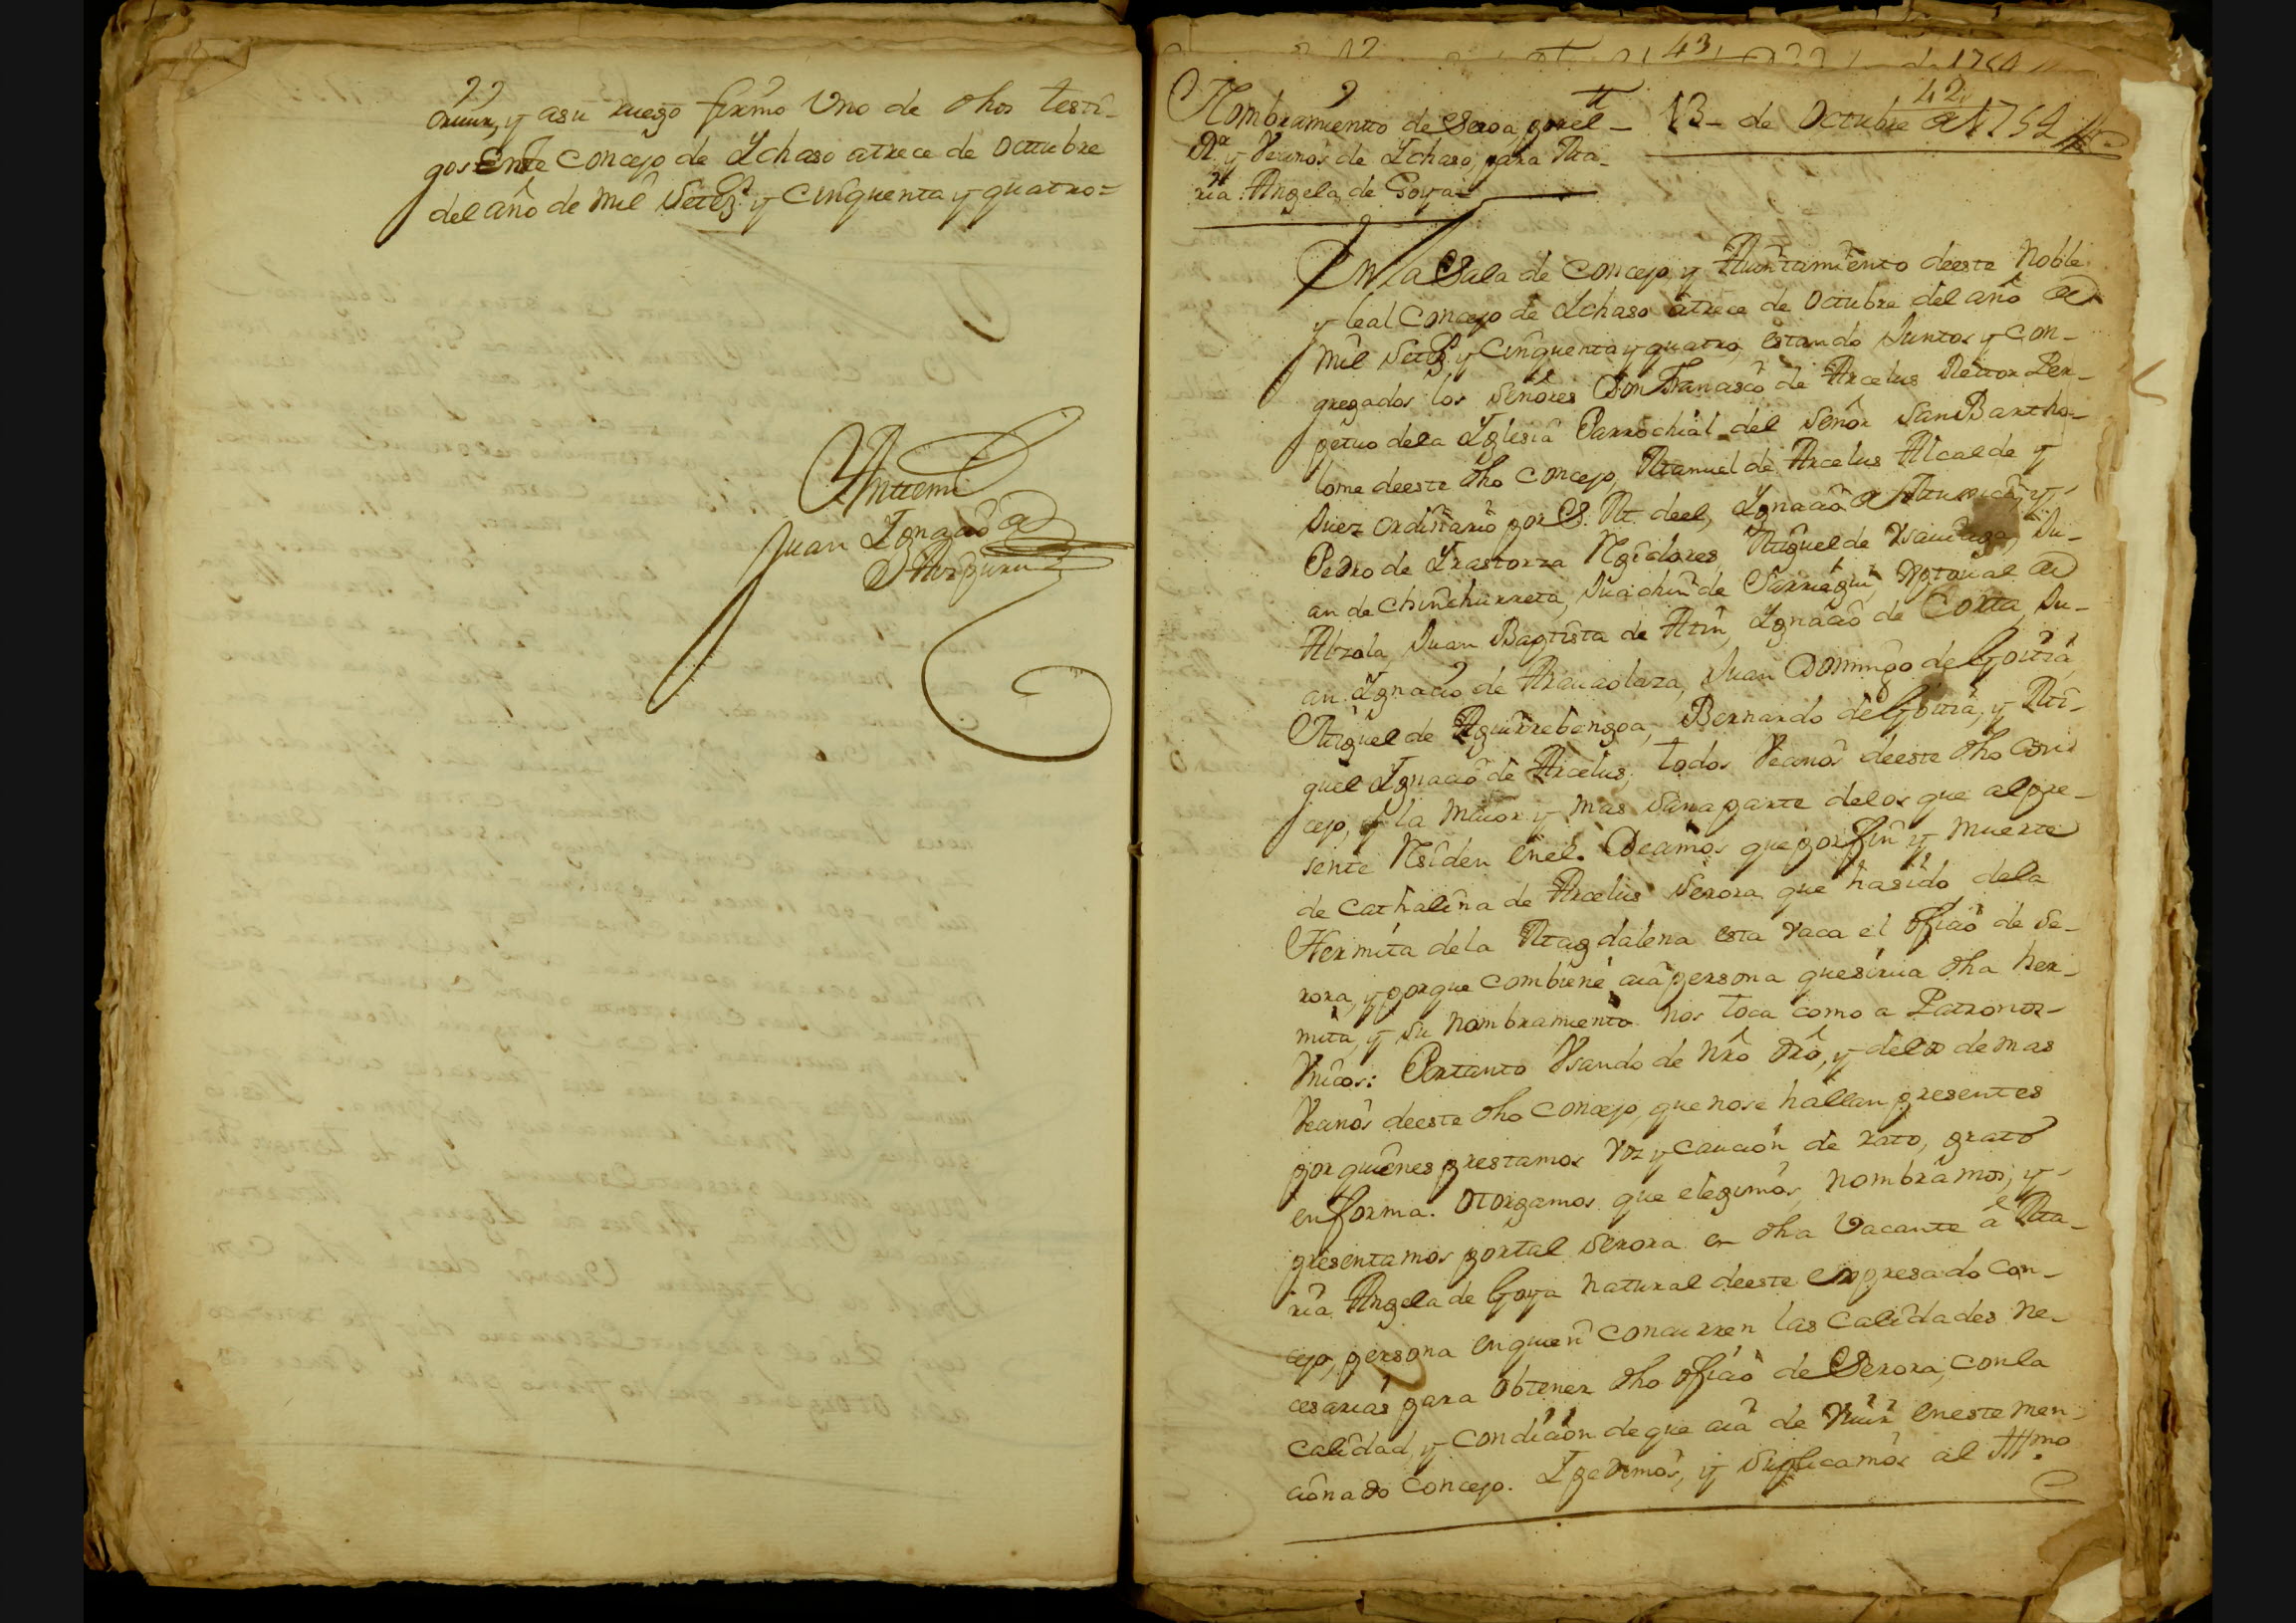 y asu ruego firmo Uno de dhos testi-
gos Ente Concejo de Ichaso atrece de Octtubre
del año de mil Settezs. y Cinquenta y quatro=
Anttemi
Juan Ignacio de
Aizpuru
43
42
Nombramiento de Seroa, por el -
Rr. y Vecinos de Ichaso, para Ma-
ria Angela de Goya
13- de Octubre de 1754
En la Sala de Concejo y Aiuntamiento deeste Noble
y leal Concejo de Ichaso atrece de Octubre del año de
mil Settezs. y Cinquenta y quatro, estando Juntos y con-
gregados los Señores Don Francisco de Arcelus Rettor Per-
petuo dela Iglesia Parrochial del Señor San Bartho-
lome deeste dho Concejo, Manuel de Arcelus Alcalde y
Juez ordinario por S. M. deel, Ignacio de y
Pedro de Irastorza Rexidores, Miguel de Ju-
an de Chinchurreta, Juachin de Sarriegui, de
Alzola, Juan Baptista de Atin, Ignacio de Corta, Ju-
an Ignacio de Araucolaza, Juan Domingo de Goitia,
Miguel de Aguirrebengoa, Bernardo de Goitia, y Mi-
guel Ignacio de Arcelus, todos Vecinos deeste dho Con-
cejo, y la maior y mas sana parte delos que alpre-
sente Residen enel. Decimos que por fin y muerte
de Cathalina de Arcelus Serora que hasido dela
Hermita dela Magdalena esta vaca el oficio de Se-
rora, y porque combiene aia persona quesirua dha her-
mita, y su nombramiento nos toca como a Patronos
Vnicos: Portanto Vsando de nro dro, y delos demas
Vecinos deeste dho Concejo, quenose hallan presentes
por quienes prestamos voz y caucion de rato, grato
en forma. Otorgamos que elegimos, nombramos, y
presentamos portal Serora en dha Vacante â Ma-
ria Angela de Goya natural deeste expresado Con-
cejo, persona enquien concurren las calidades ne-
cesarias para obtener dho oficio de Serora, conla
calidad, y condicion deque aia de Viuir eneste men-
cionado Concejo. I pedimos, y Suplicamos al Illmo